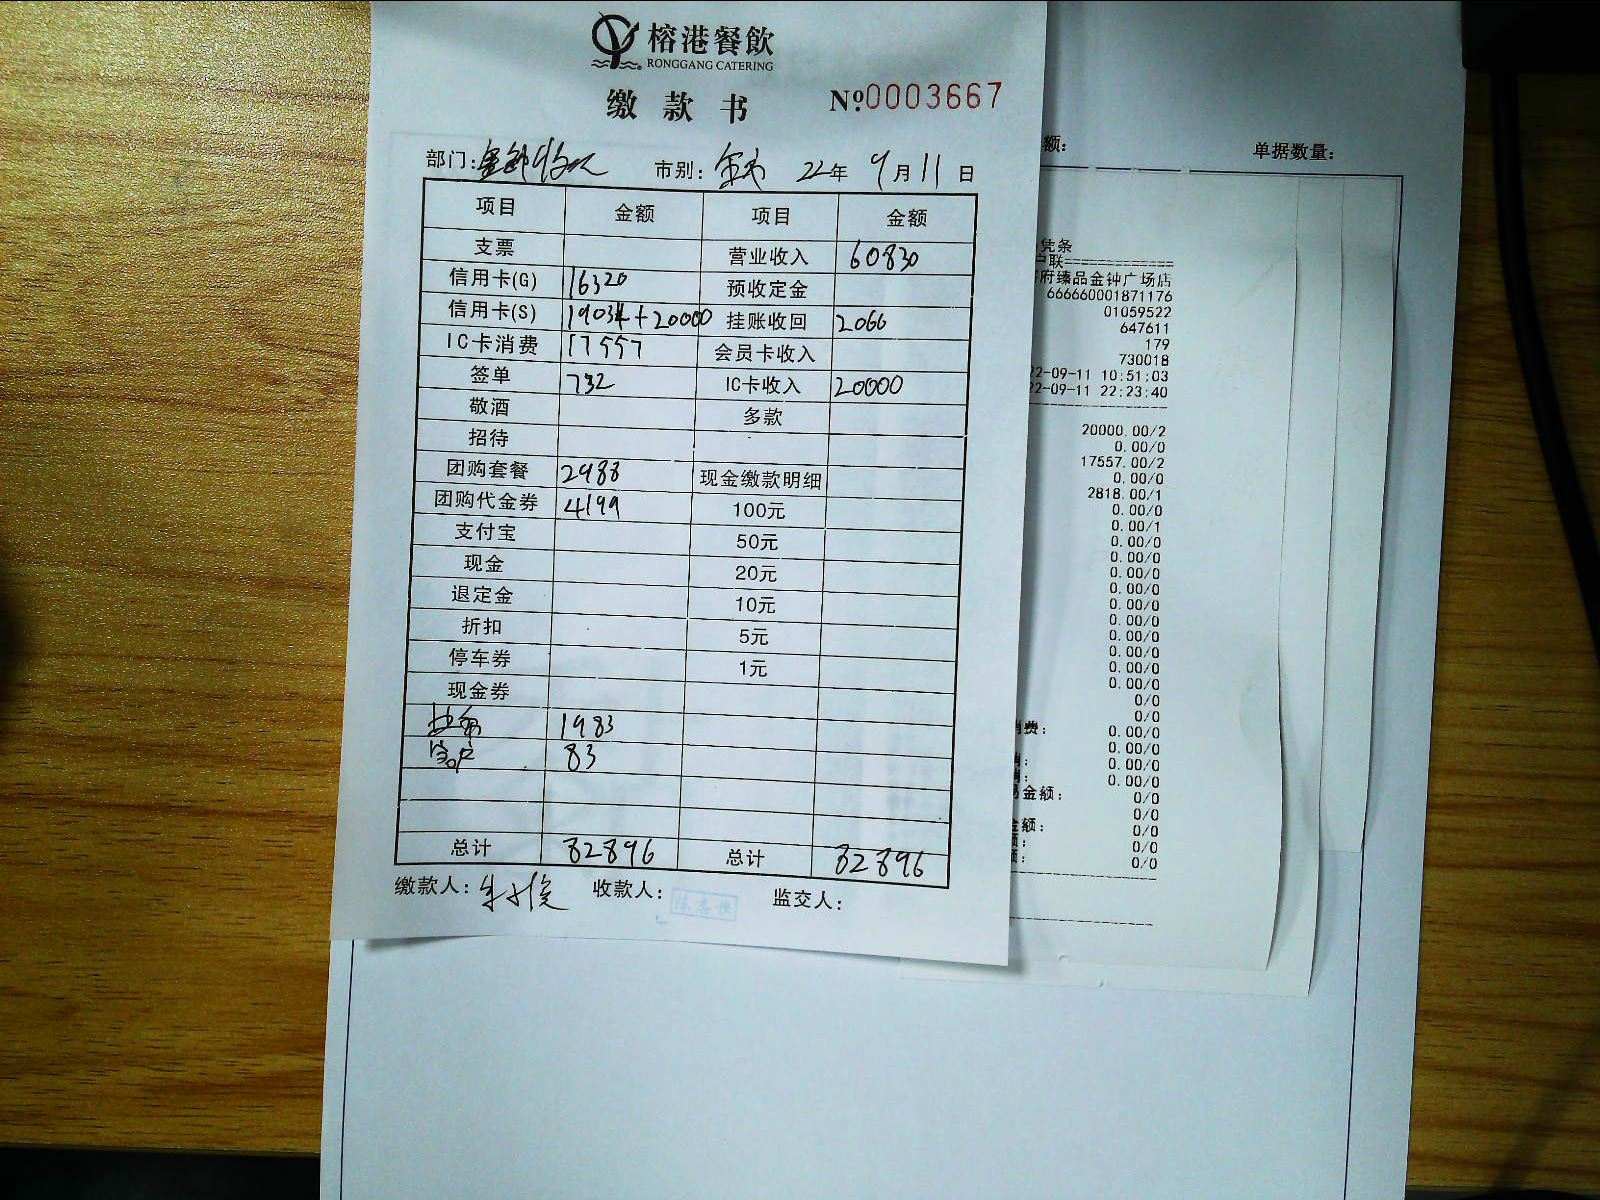 榕港餐飲
RONGGANG CATERING
缴款书 №0003667
部门: 市别: 22年 9月11日
项目 金额 项目 金额
支票 营业收入 60830
信用卡(G) 16320 预收定金
信用卡(S) 19034+20000 挂账收回 2066
IC卡消费 17557 会员卡收入
签单 732 IC卡收入 20000
敬酒 多款
招待
团购套餐 2988 现金缴款明细
团购代金券 4199 100元
支付宝 50元
现金 20元
退定金 10元
折扣 5元
停车券 1元
现金券
1983
83
总计 82896 总计 82896
缴款人: 收款人: 监交人:
额: 单据数量:
凭条
户联==============
府臻品金钟广场店
666660001871176
01059522
647611
179
730018
22-09-11 10:51:03
22-09-11 22:23:40
20000.00/2
0.00/0
17557.00/2
0.00/0
2818.00/1
0.00/0
0.00/1
0.00/0
0.00/0
0.00/0
0.00/0
0.00/0
0.00/0
0.00/0
0.00/0
0.00/0
0.00/0
0/0
0/0
消费: 0.00/0
0.00/0
销: 0.00/0
销: 0.00/0
易金额: 0/0
0/0
金额: 0/0
额: 0/0
额: 0/0